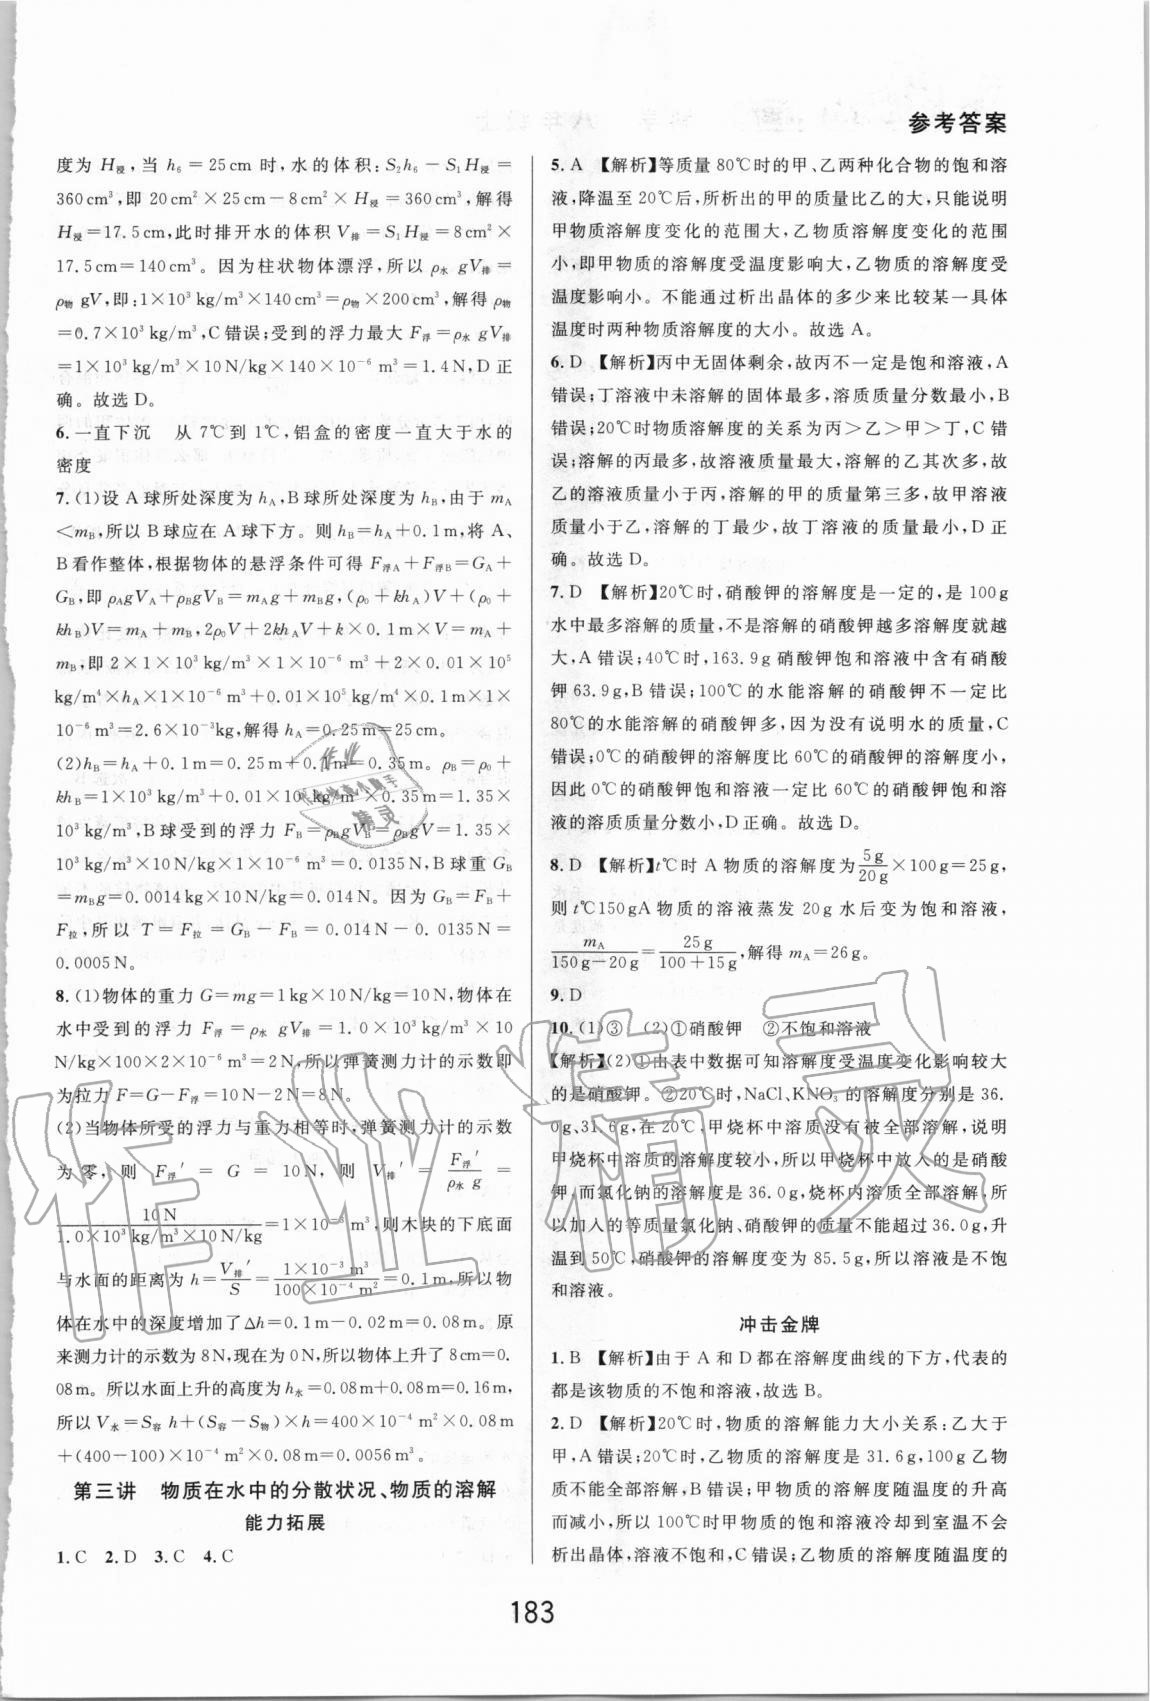 参考答案
度为 H浸，当 h₆＝25 cm 时，水的体积：S₂h₆－S₁H浸＝
360 cm³，即 20 cm²×25 cm－8 cm²×H浸＝360 cm³，解得
H浸＝17.5 cm，此时排开水的体积 V排＝S₁H浸＝8 cm²×
17.5 cm＝140 cm³。因为柱状物体漂浮，所以 ρ水 gV排＝
ρ物 gV，即：1×10³ kg/m³×140 cm³＝ρ物×200 cm³，解得 ρ物
＝0.7×10³ kg/m³，C 错误；受到的浮力最大 F浮＝ρ水 gV排
＝1×10³ kg/m³×10 N/kg×140×10⁻⁶ m³＝1.4 N，D 正
确。故选 D。
6. 一直下沉　从 7℃到 1℃，铝盒的密度一直大于水的
密度
7. (1)设 A 球所处深度为 hA，B 球所处深度为 hB，由于 mA
＜mB，所以 B 球应在 A 球下方。则 hB＝hA＋0.1 m，将 A、
B 看作整体，根据物体的悬浮条件可得 F浮A＋F浮B＝GA＋
GB，即 ρAgVA＋ρBgVB＝mAg＋mBg，(ρ₀＋khA)V＋(ρ₀＋
khB)V＝mA＋mB，2ρ₀V＋2khAV＋k×0.1 m×V＝mA＋
mB，即 2×1×10³ kg/m³×1×10⁻⁶ m³＋2×0.01×10⁵
kg/m⁴×hA×1×10⁻⁶ m³＋0.01×10⁵ kg/m⁴×0.1 m×1×
10⁻⁶ m³＝2.6×10⁻³ kg，解得 hA＝0.25 m＝25 cm。
(2)hB＝hA＋0.1 m＝0.25 m＋0.1 m＝0.35 m。ρB＝ρ₀＋
khB＝1×10³ kg/m³＋0.01×10⁵ kg/m⁴×0.35 m＝1.35×
10³ kg/m³，B 球受到的浮力 FB＝ρBgVB＝ρBgV＝1.35×
10³ kg/m³×10 N/kg×1×10⁻⁶ m³＝0.0135 N，B 球重 GB
＝mBg＝0.0014 kg×10 N/kg＝0.014 N。因为 GB＝FB＋
F拉，所以 T＝F拉＝GB－FB＝0.014 N－0.0135 N＝
0.0005 N。
8. (1)物体的重力 G＝mg＝1 kg×10 N/kg＝10 N，物体在
水中受到的浮力 F浮＝ρ水 gV排＝1.0×10³ kg/m³×10
N/kg×100×2×10⁻⁶ m³＝2 N，所以弹簧测力计的示数即
为拉力 F＝G－F浮＝10 N－2 N＝8 N。
(2)当物体所受的浮力与重力相等时，弹簧测力计的示数
为零，则 F浮′＝G＝10 N，则 V排′＝F浮′/(ρ水 g)＝
10 N/(1.0×10³ kg/m³×10 N/kg)＝1×10⁻³ m³，则木块的下底面
与水面的距离为 h＝V排′/S＝(1×10⁻³ m³)/(100×10⁻⁴ m²)＝0.1 m，所以物
体在水中的深度增加了 Δh＝0.1 m－0.02 m＝0.08 m。原
来测力计的示数为 8 N，现在为 0 N，所以物体上升了 8 cm＝0.
08 m。所以水面上升的高度为 h水＝0.08 m＋0.08 m＝0.16 m，
所以 V水＝S容 h＋(S容－S物)×h＝400×10⁻⁴ m²×0.08 m
＋(400－100)×10⁻⁴ m²×0.08 m＝0.0056 m³。
第三讲　物质在水中的分散状况、物质的溶解
能力拓展
1. C　2. D　3. C　4. C
5. A　【解析】等质量 80℃时的甲、乙两种化合物的饱和溶
液，降温至 20℃后，所析出的甲的质量比乙的大，只能说明
甲物质溶解度变化的范围大，乙物质溶解度变化的范围
小，即甲物质的溶解度受温度影响大，乙物质的溶解度受
温度影响小。不能通过析出晶体的多少来比较某一具体
温度时两种物质溶解度的大小。故选 A。
6. D　【解析】丙中无固体剩余，故丙不一定是饱和溶液，A
错误；丁溶液中未溶解的固体最多，溶质质量分数最小，B
错误；20℃时物质溶解度的关系为丙＞乙＞甲＞丁，C 错
误；溶解的丙最多，故溶液质量最大，溶解的乙其次多，故
乙的溶液质量小于丙，溶解的甲的质量第三多，故甲溶液
质量小于乙，溶解的丁最少，故丁溶液的质量最小，D 正
确。故选 D。
7. D　【解析】20℃时，硝酸钾的溶解度是一定的，是 100 g
水中最多溶解的质量，不是溶解的硝酸钾越多溶解度就越
大，A 错误；40℃时，163.9 g 硝酸钾饱和溶液中含有硝酸
钾 63.9 g，B 错误；100℃的水能溶解的硝酸钾不一定比
80℃的水能溶解的硝酸钾多，因为没有说明水的质量，C
错误；0℃的硝酸钾的溶解度比 60℃的硝酸钾溶解度小，
因此 0℃的硝酸钾饱和溶液一定比 60℃的硝酸钾饱和溶
液的溶质质量分数小，D 正确。故选 D。
8. D　【解析】t℃时 A 物质的溶解度为 5 g/20 g×100 g＝25 g，
则 t℃150 gA 物质的溶液蒸发 20 g 水后变为饱和溶液，
mA/(150 g－20 g)＝25 g/(100＋15 g)，解得 mA＝26 g。
9. D
10. (1)③　(2)①硝酸钾　②不饱和溶液
【解析】(2)①由表中数据可知溶解度受温度变化影响较大
的是硝酸钾。②20℃时，NaCl、KNO₃ 的溶解度分别是 36.
0 g、31.6 g，在 20℃，甲烧杯中溶质没有被全部溶解，说明
甲烧杯中溶质的溶解度较小，所以甲烧杯中放入的是硝酸
钾，而氯化钠的溶解度是 36.0 g，烧杯内溶质全部溶解，所
以加入的等质量氯化钠、硝酸钾的质量不能超过 36.0 g，升
温到 50℃，硝酸钾的溶解度变为 85.5 g，所以溶液是不饱
和溶液。
冲击金牌
1. B　【解析】由于 A 和 D 都在溶解度曲线的下方，代表的
都是该物质的不饱和溶液，故选 B。
2. D　【解析】20℃时，物质的溶解能力大小关系：乙大于
甲，A 错误；20℃时，乙物质的溶解度是 31.6 g，100 g 乙物
质不能全部溶解，B 错误；甲物质的溶解度随温度的升高
而减小，所以 100℃时甲物质的溶液冷却到室温不会
析出晶体，溶液不饱和，C 错误；乙物质的溶解度随温度的
183
作业精灵